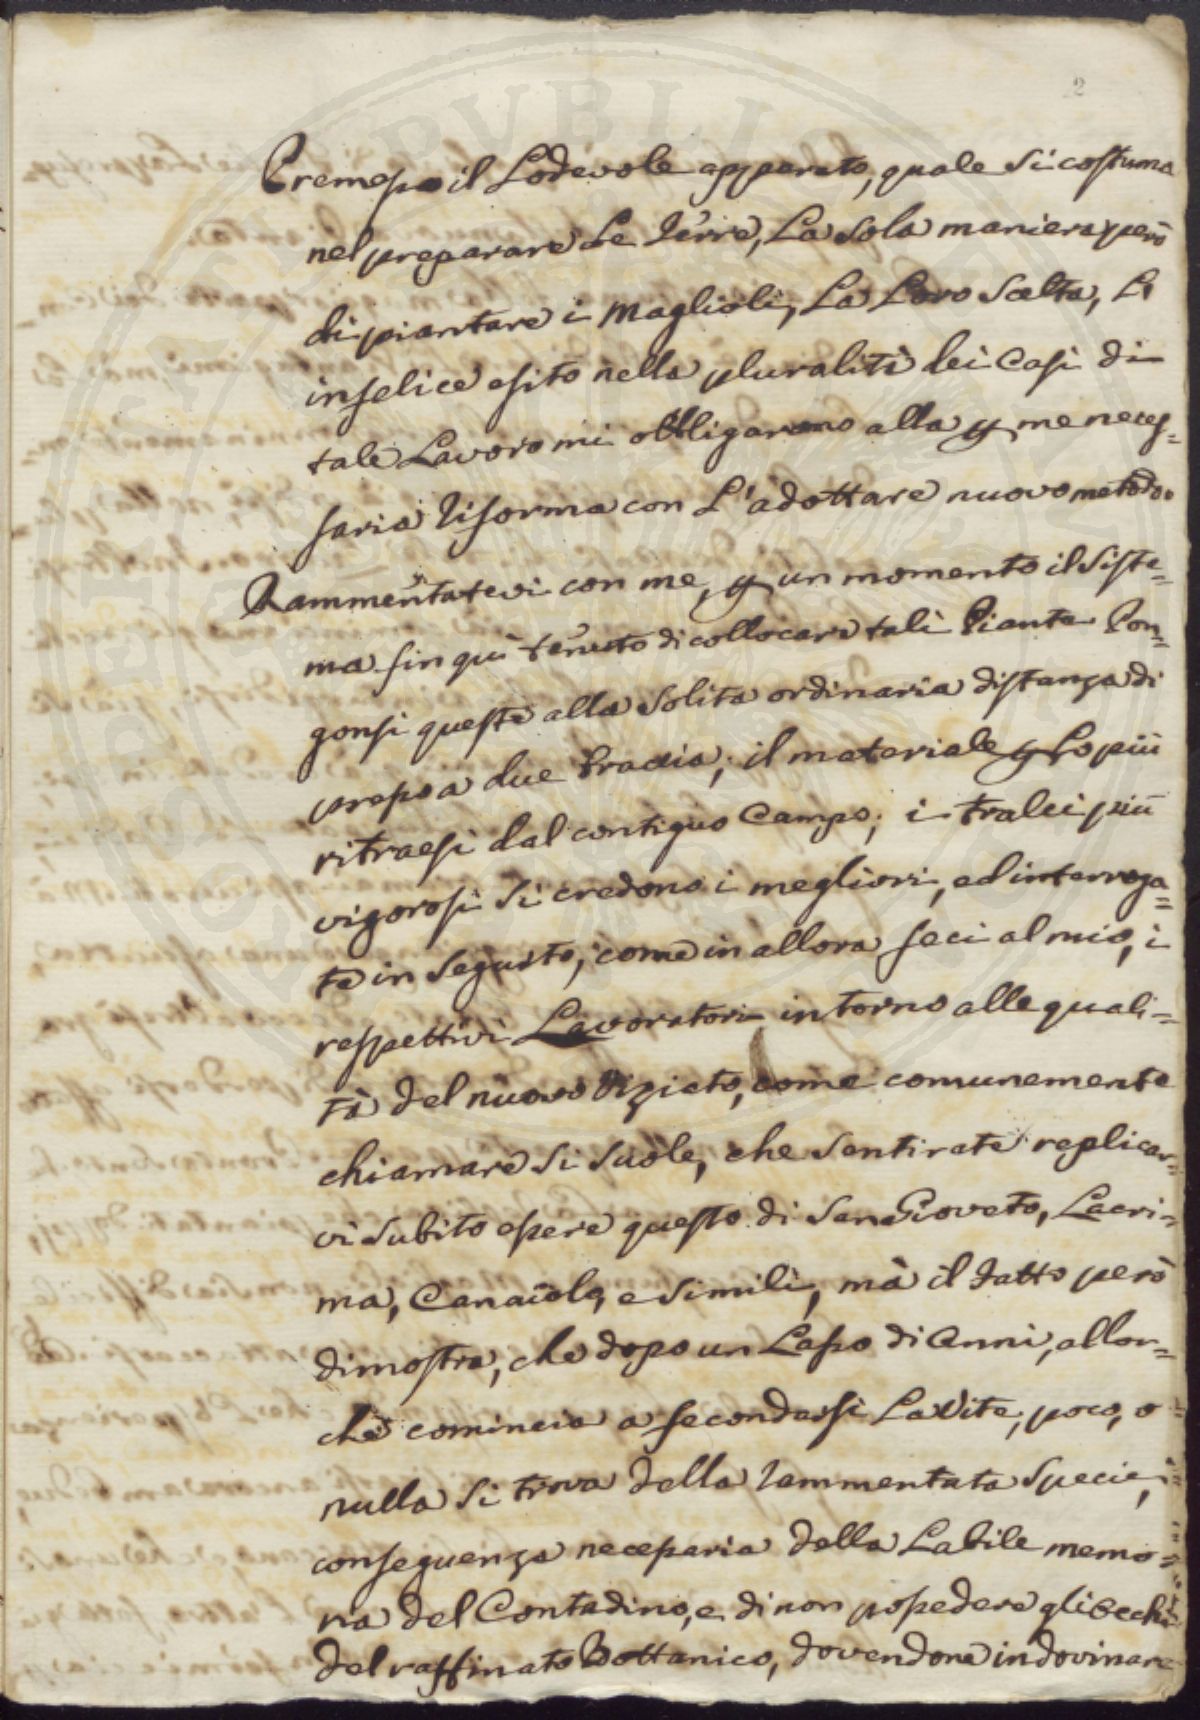 2
Premesso il Lodevole apparato, quale si costuma
nel preparare Le Terre, La sola maniera però
di piantare i Maglioli, La Loro Scelta, L'
infelice esito nella pluralità dei Casi di
tale Lavoro mi obbligarono alla p me neces=
saria riforma con L'adottare nuovo metodo.
Rammentatevi con me, p un momento il Siste=
ma fin quì tenuto di collocare tali Piante Pon=
gonsi queste alla Solita ordinaria distanza di
presso a due Braccia; il materiale p Lo più
ritraesi dal contiguo Campo; i tralci più
vigorosi Si credono i megliori, ed interroga=
te in Seguito, come in allora feci al mio, i
respettivi Lavoratori intorno alle quali=
tà del nuovo Viziato, come comunemente
chiamare Si Suole, che Sentirate replicar=
vi Subito essere questo di SanGioveto, Lacri=
ma, Canaiolo, e Simili, mà il Fatto però
dimostra, che dopo un Lasso di Anni, allor=
chè comincia a fecondarsi La Vite, poco, o
nulla Si trova della rammentata Specie,
conseguenza necessaria della Labile memo=
ria del Contadino, e di non possedere gli occhi
del raffinato Bottanico, dovendone indovinare